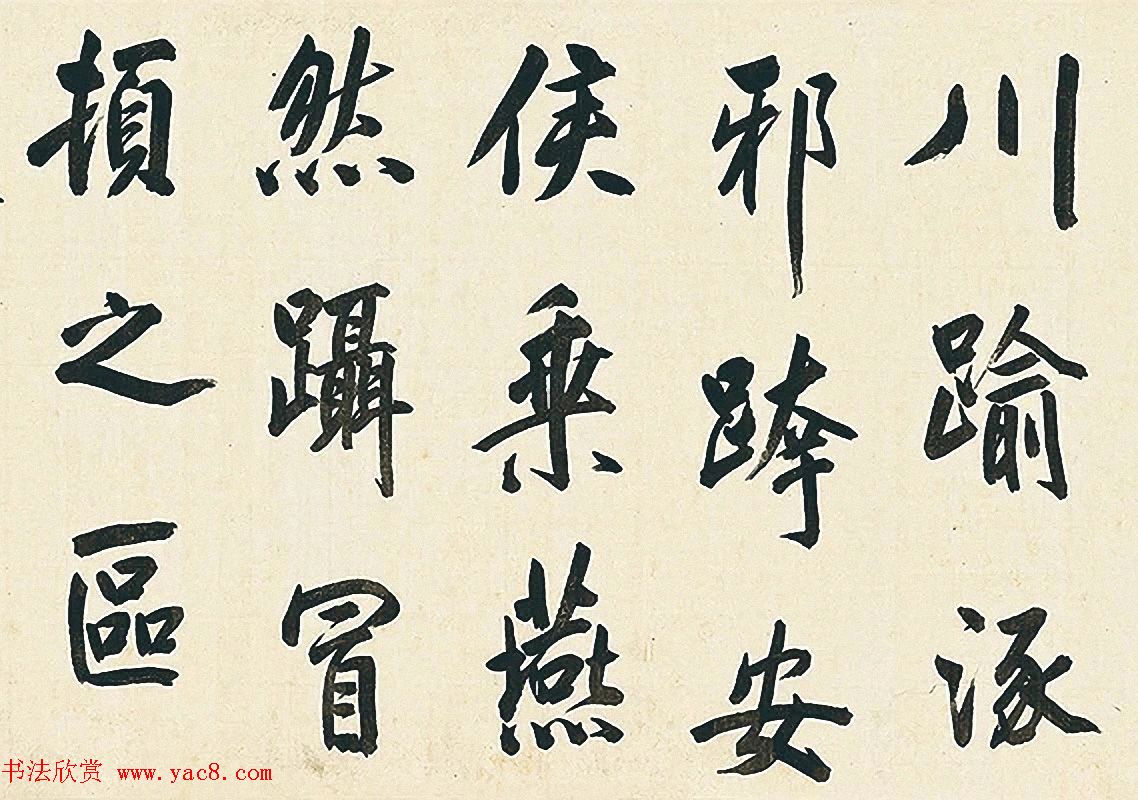 川踰涿
邪跨安
侯乗燕
然躡冒
頓之區
书法欣赏 www.yac8.com